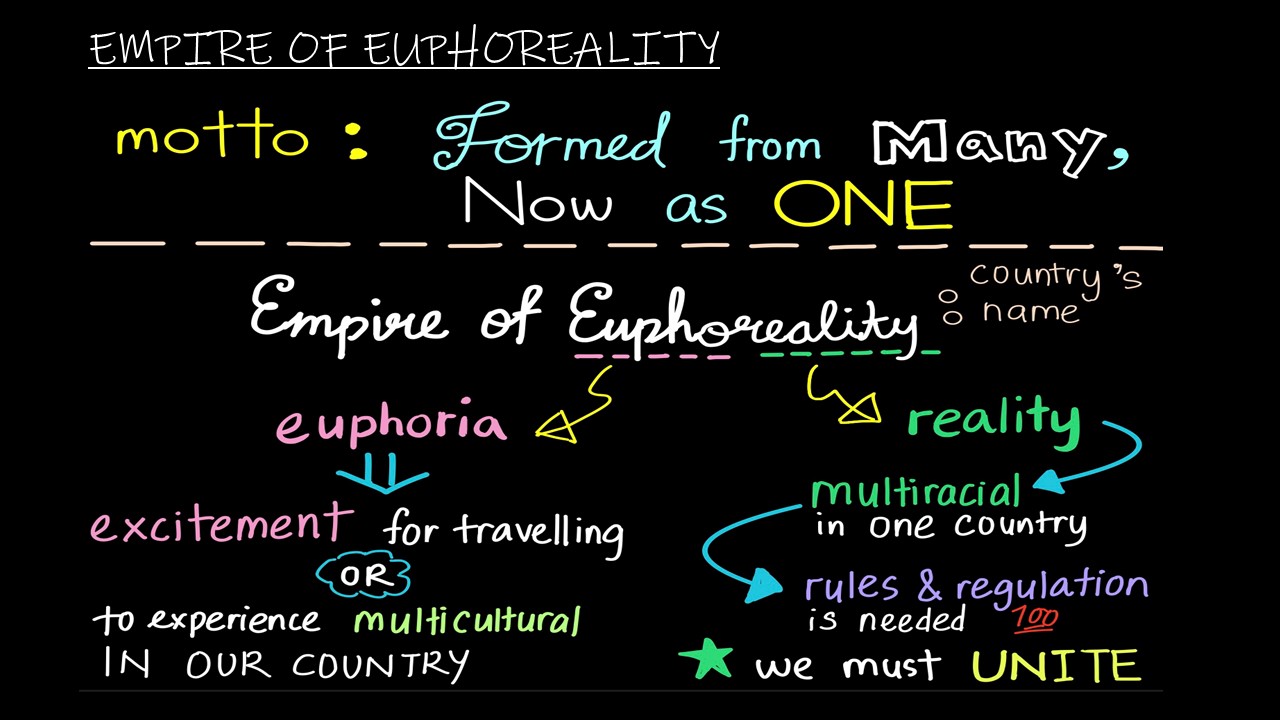 EMPIRE OF EUPHOREALITY
motto : Formed from Many,
Now as ONE
Empire of Euphoreality : country's
name
euphoria
reality
excitement for travelling
OR
to experience multicultural
IN OUR COUNTRY
multiracial
in one country
rules & regulation
is needed 100
★ we must UNITE